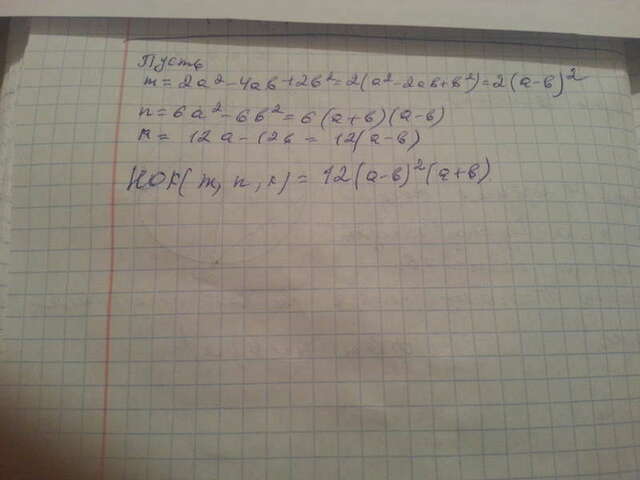 Пусть
m = 2a² - 4ab + 2b² = 2(a² - 2ab + b²) = 2(a-b)²
n = 6a² - 6b² = 6(a+b)(a-b)
k = 12a - 12b = 12(a-b)
НОК(m, n, k) = 12(a-b)²(a+b)